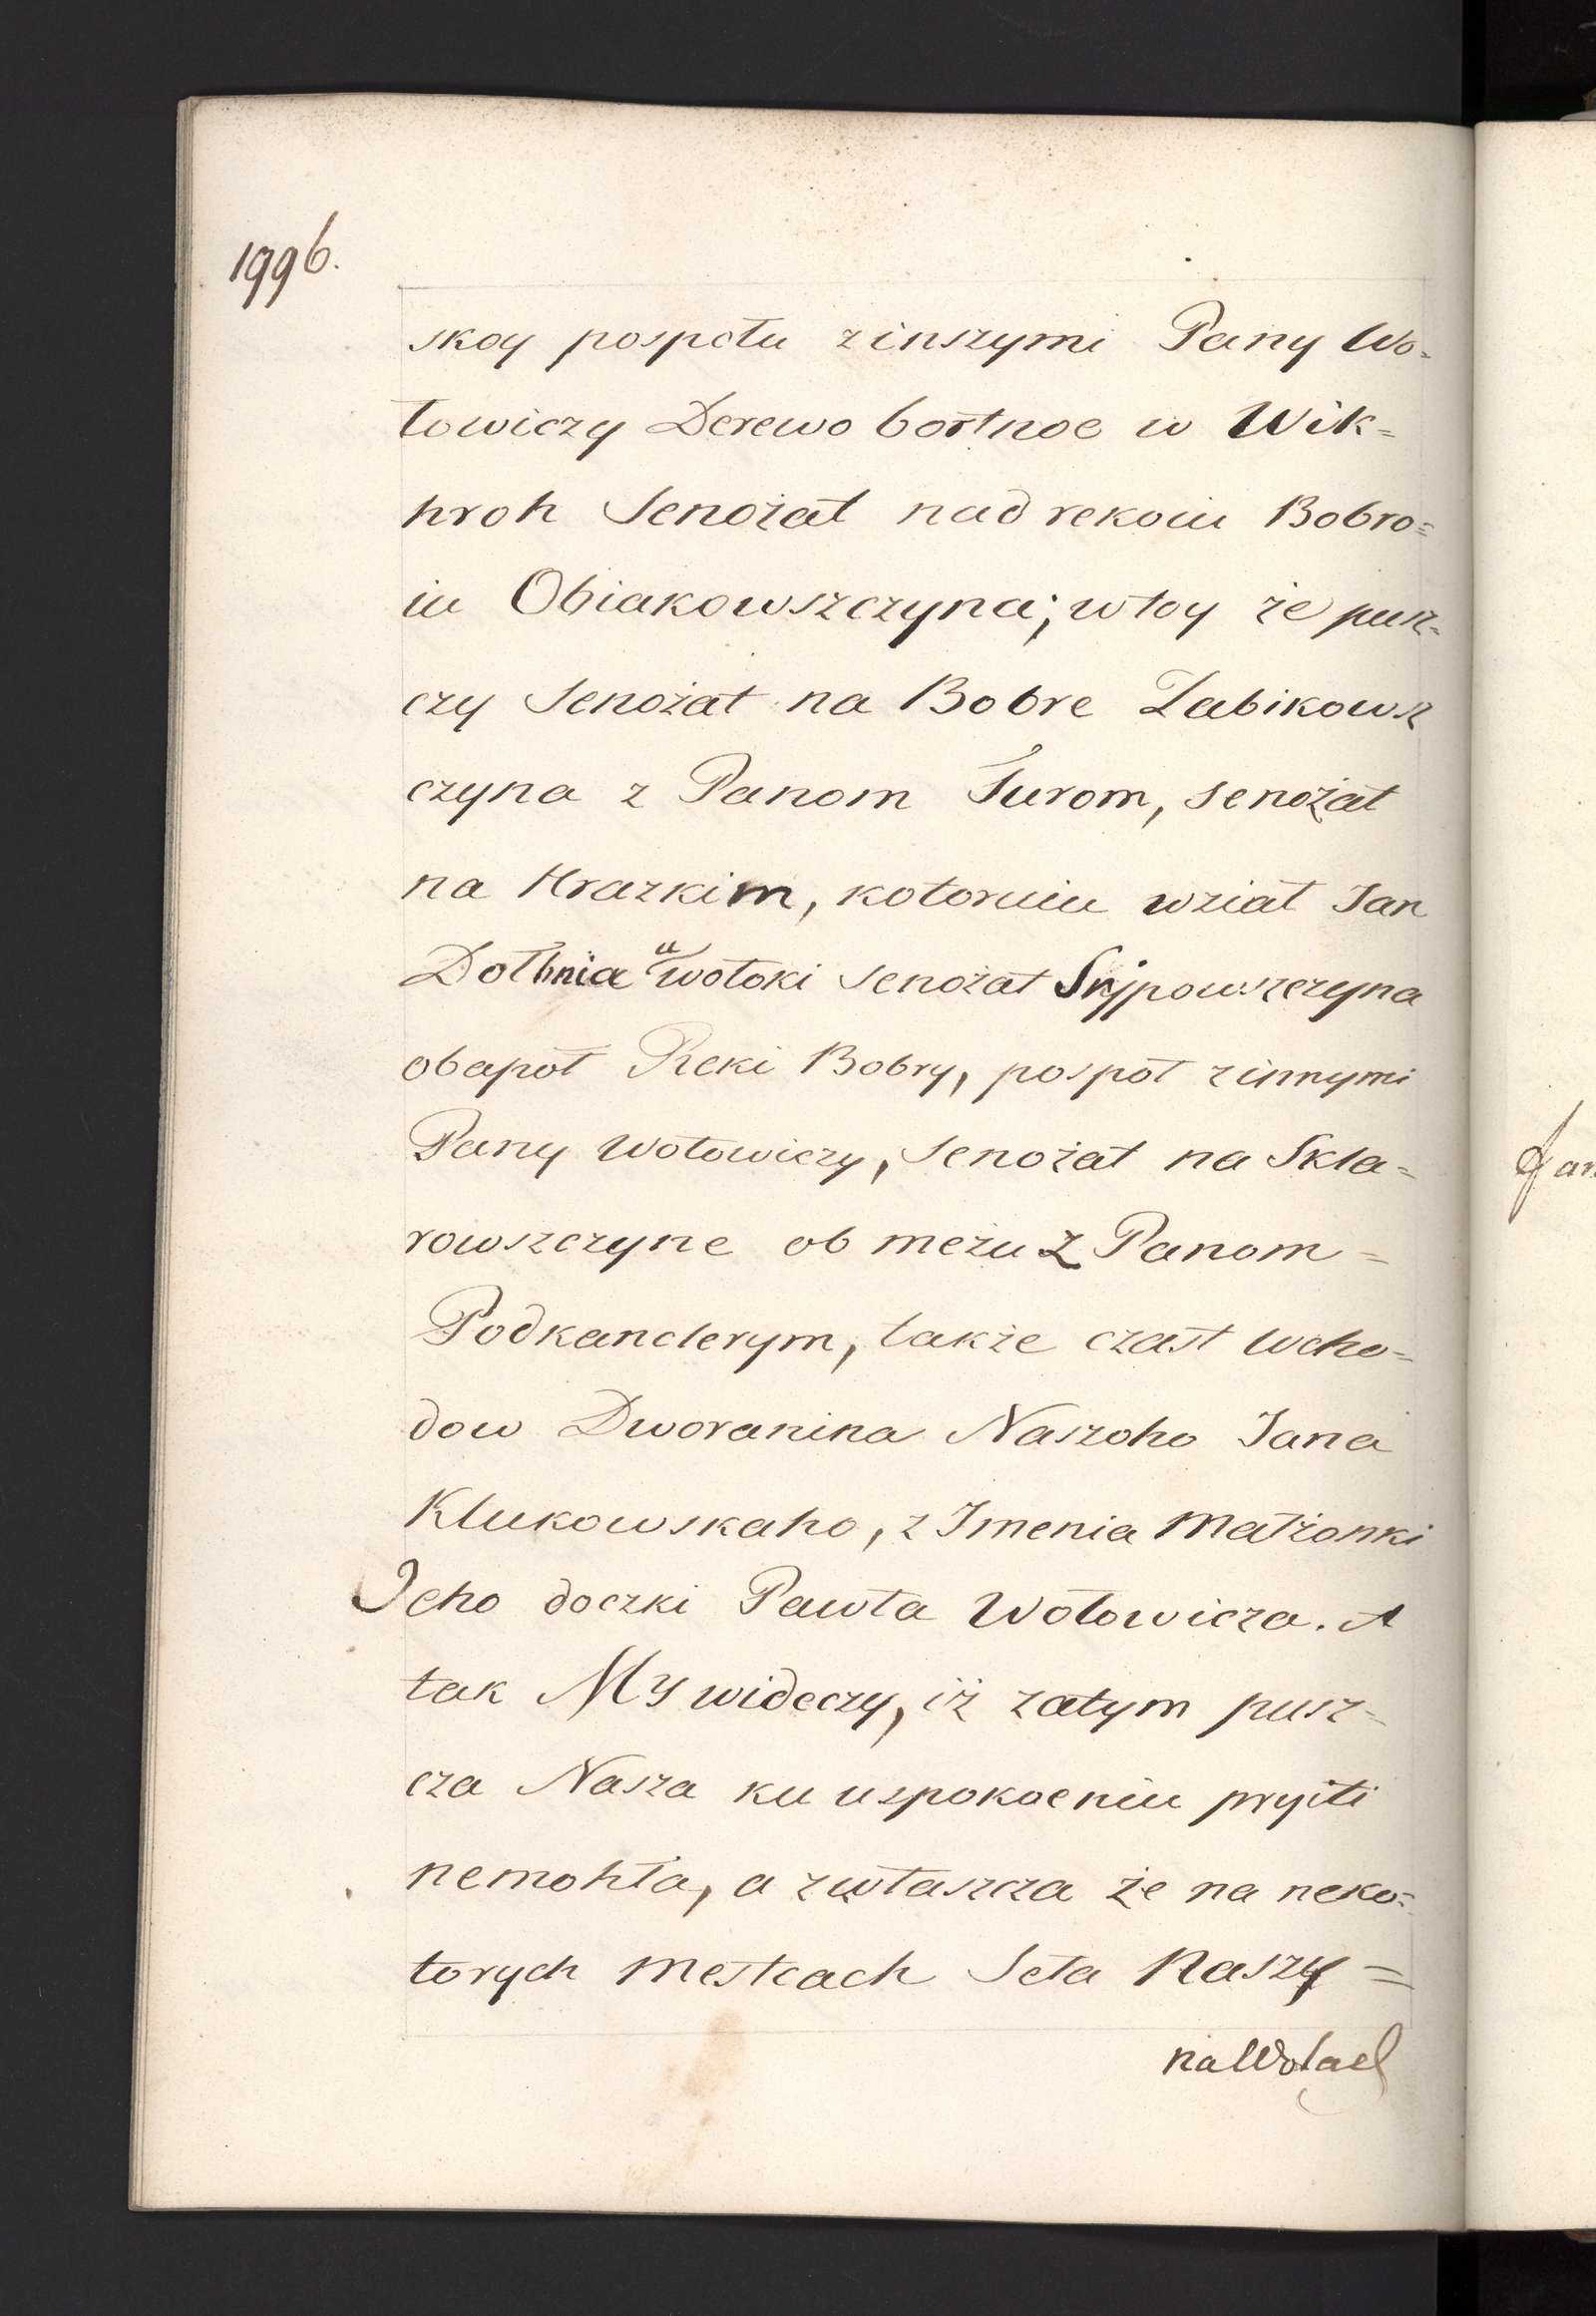 1996.
skoy pospołu zinszymi Pany Wo=
łowiczy Derewo bortnoe w Wik=
hroh Senożat nad rekoiu Bobro=
iu Obiakowszczyna; wtoy że pusz=
czy Senożat na Bobre Zabikowsz
czyna z Panom Turom, senożat
na Hrazkim, kotoruiu wziat Jan
Dołhnia u wołoki senożat Sypowszczyna
obapoł Reki Bobry, pospoł zinnymi
Pany Wołowiczy, Senożat na Skla=
rowszczyne ob meżu z Panom=
Podkanclerym, także czast wcho=
dow Dworanina Naszoho Jana
Klukowskaho, z Imenia Małżonki
Jeho doczki Pawła Wołowicza. A
tak My wideczy, iż zatym pusz=
cza Nasza ku uspokoeniu pryiti
nemohła, a zwłaszcza że na neko=
torych mestcach Seła Naszy=
na